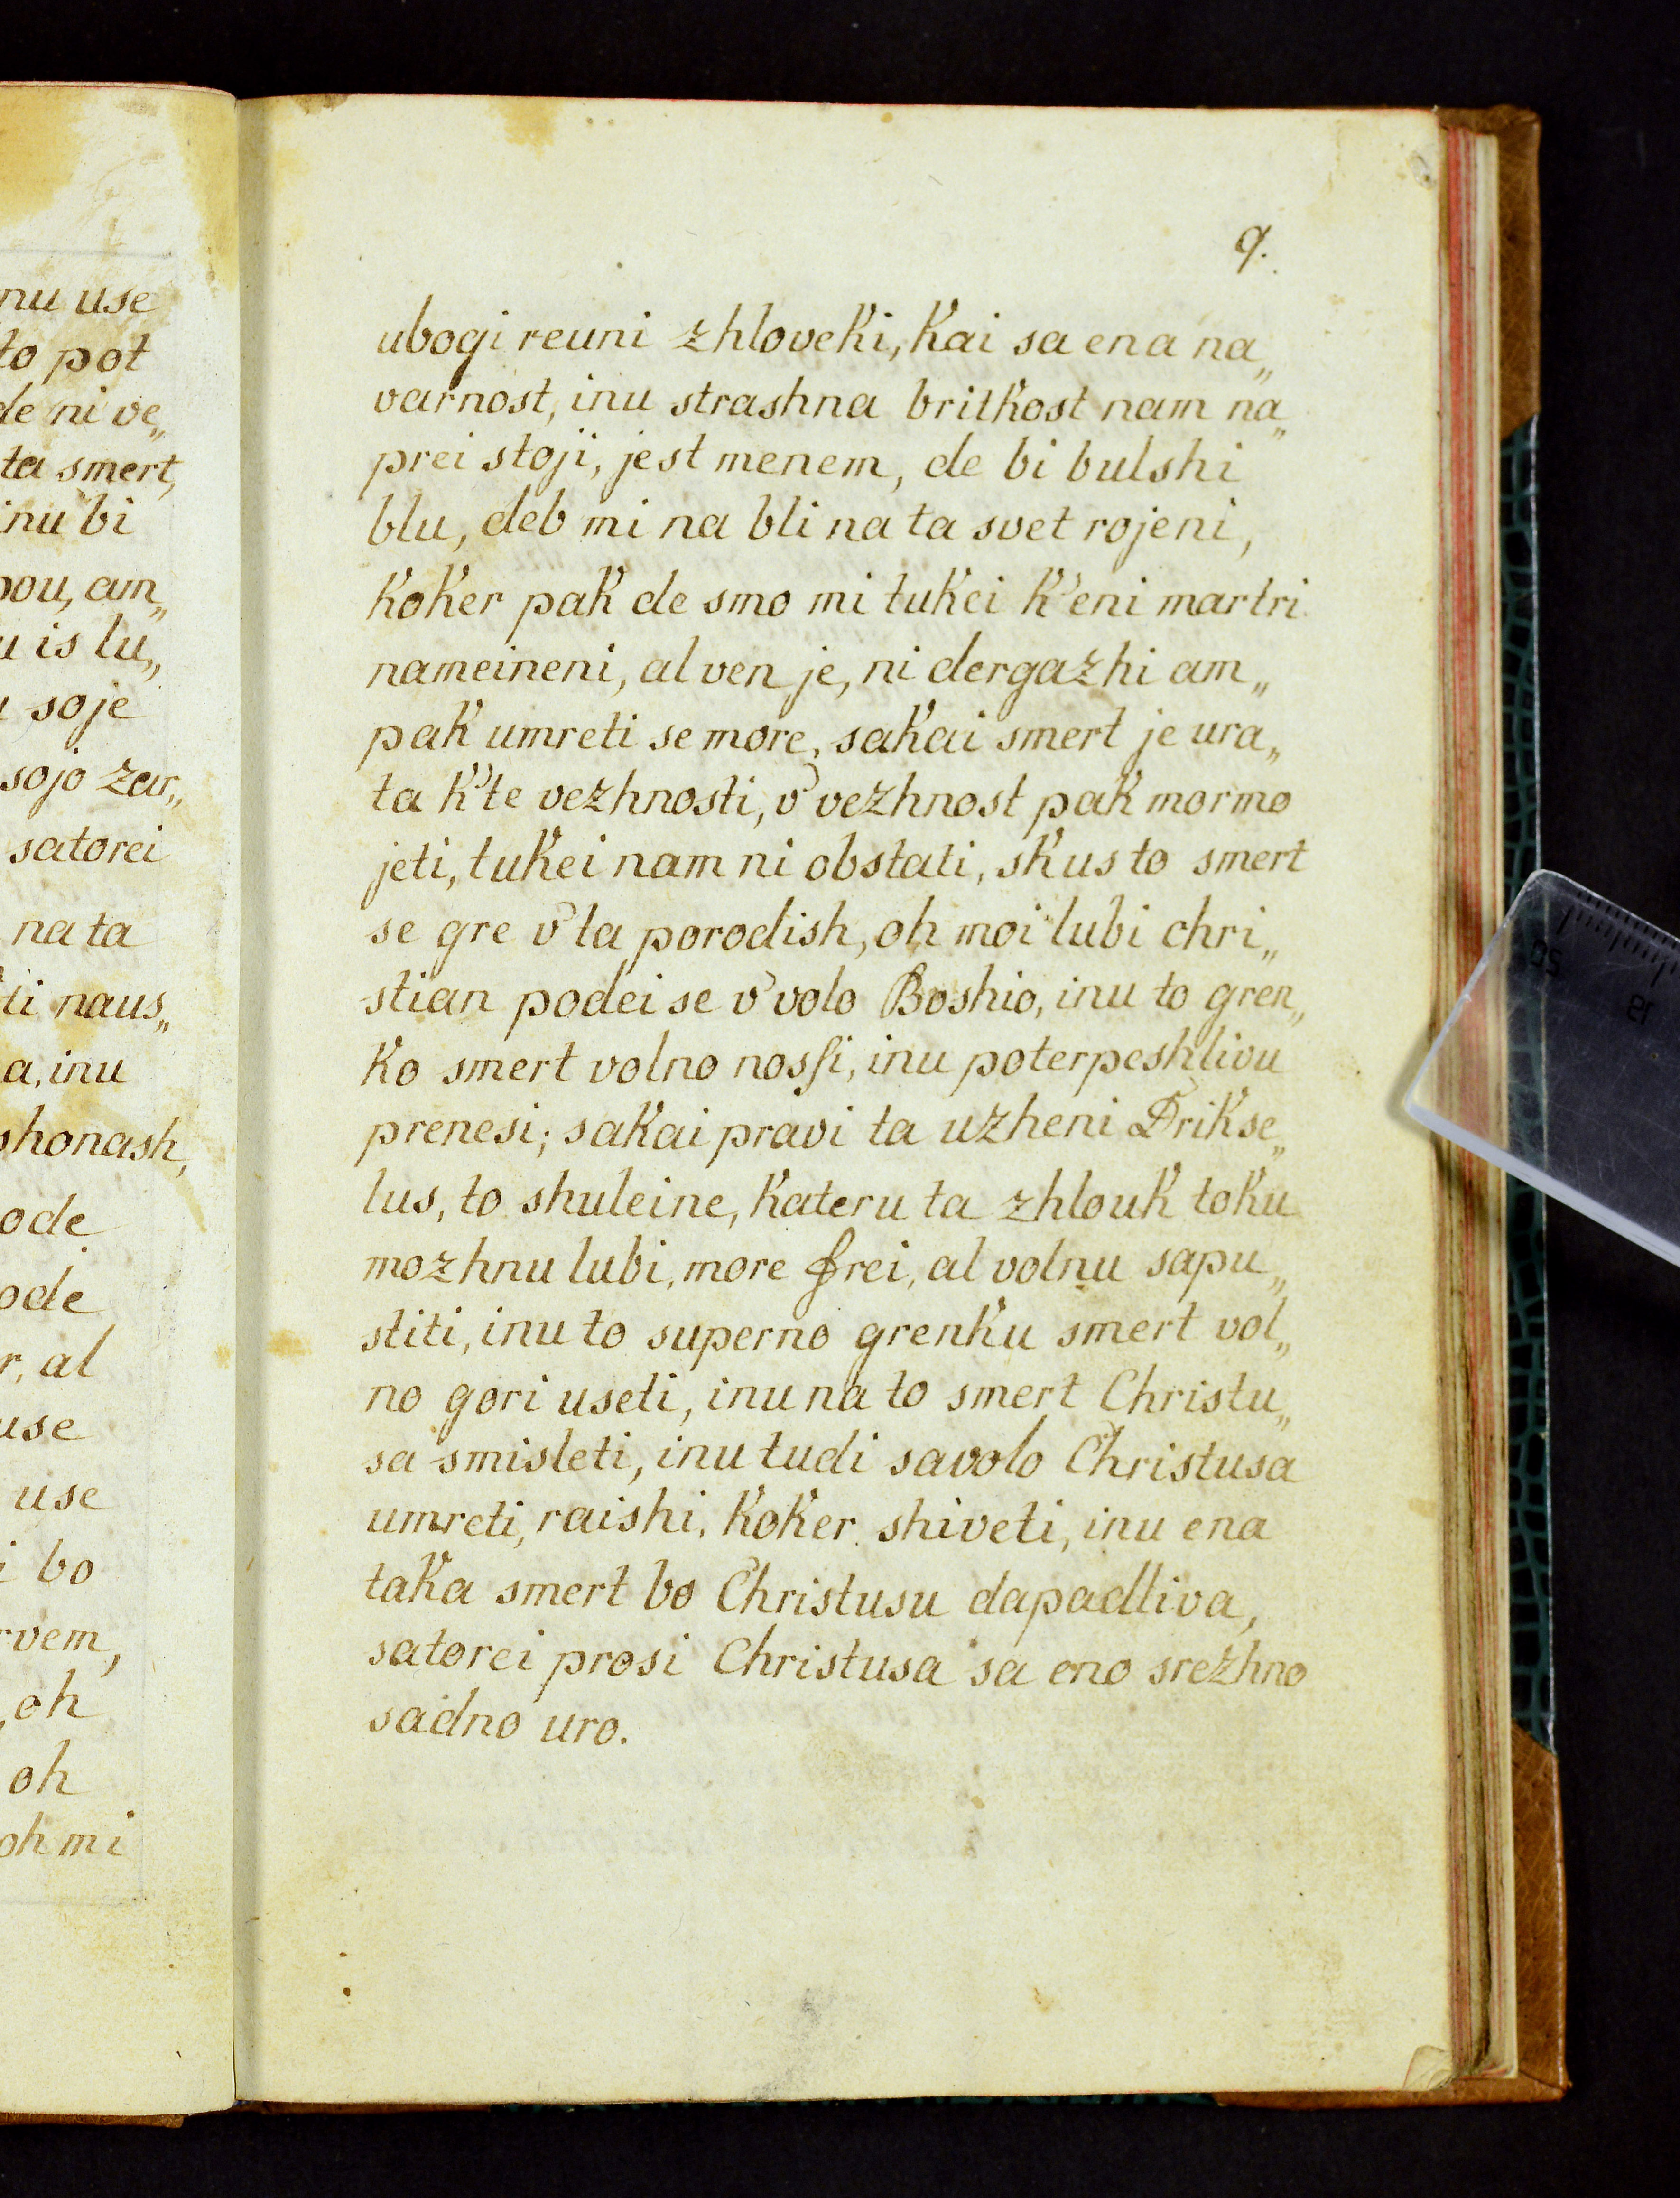 nu use
to pot
de ni ve„
ta smert,
inu bi
pou, am„
u is lu„
soje
sojo zar„
satorei
na ta
ti naus„
a, inu
shonash,
ode
ode
r, al
use
use
i bo
rvem,
oh
oh
oh mi
9.
ubogi reuni zhloveki, kai sa ena na„
varnost, inu strashna britkost nam na„
prei stoji, jest menem, de bi bulshi
blu, deb mi na bli na ta svet rojeni,
koker pak de smo mi tukei k'eni martri
nameineni, al ven je, ni dergazhi am„
pak umreti se more, sakai smert je ura„
ta k'te vezhnosti, v'vezhnost pak mormo
jeti, tukei nam ni obstati, skus to smert
se gre v'ta porodish, oh moi lubi chri„
stian podei se v'volo Boshio, inu to gren„
ko smert volno nosſi, inu poterpeshlivu
prenesi; sakai pravi ta uzheni Drikse„
lus, to shuleine, kateru ta zhlouk toku
mozhnu lubi, more frei, al volnu sapu„
stiti, inu to superno grenku smert vol„
no gori useti, inu na to smert Christu„
sa smisleti, inu tudi savolo Christusa
umreti, raishi, koker shiveti, inu ena
taka smert bo Christusu dapadliva,
satorei prosi Christusa sa eno srezhno
sadno uro.